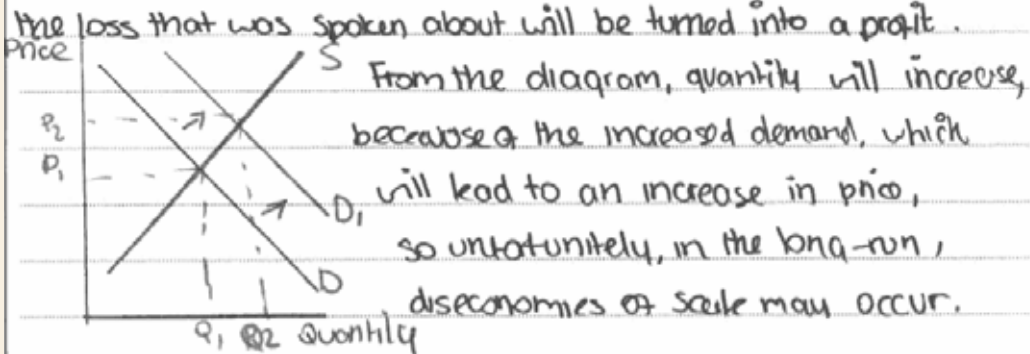 the loss that was spoken about will be turned into a profit.
Price
S
From the diagram, quantity will increase,
P2
becеause of the increased demand, which
P1
will lead to an increase in price,
D1
so unfotunitely, in the long-run,
D
diseconomies of scale may occur.
Q1 Q2 Quantity